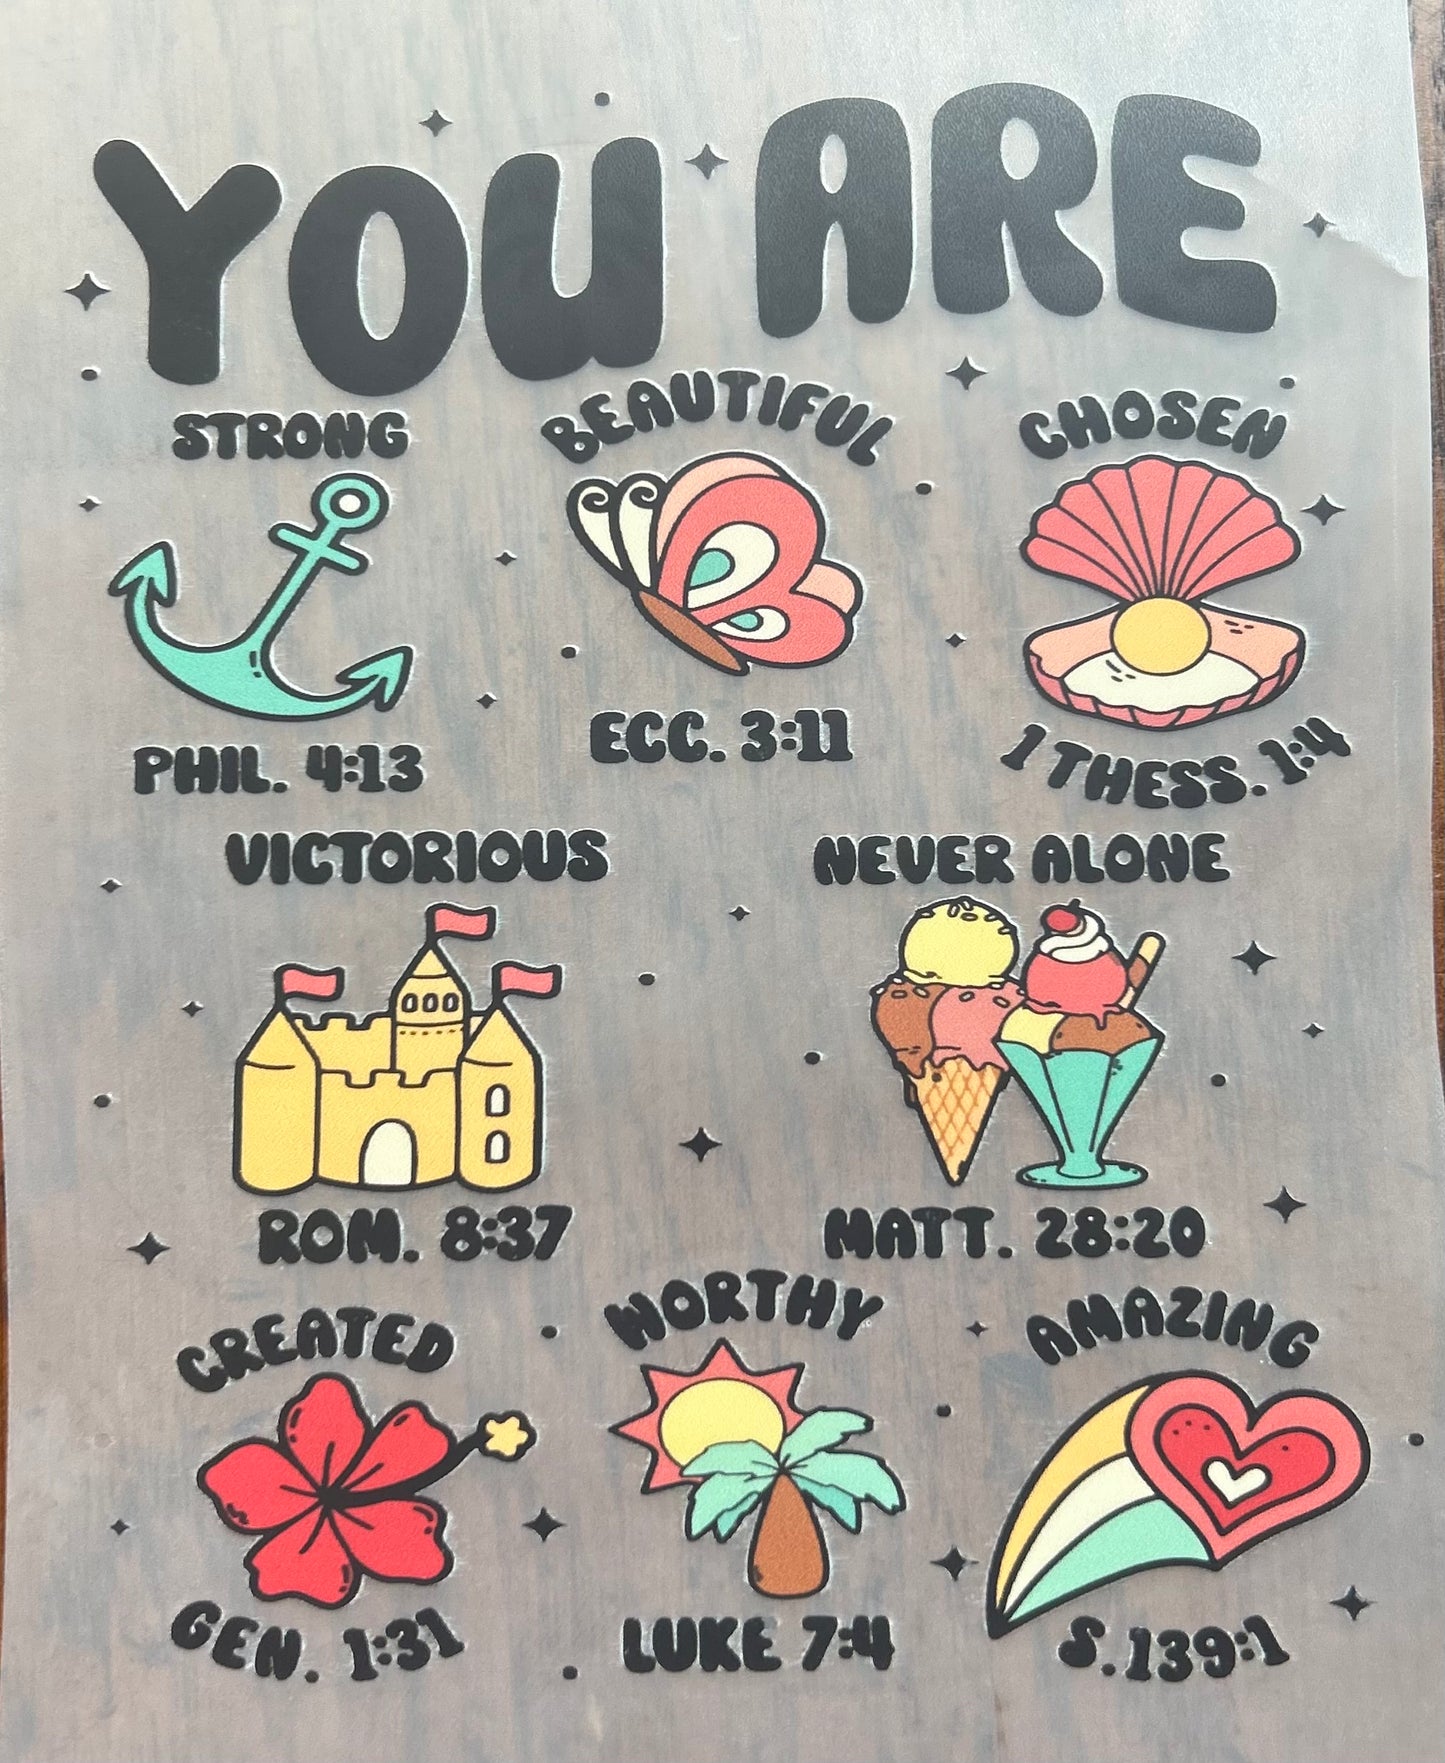 YOU ARE
STRONG
PHIL. 4:13
BEAUTIFUL
ECC. 3:11
CHOSEN
1 THESS. 1:4
VICTORIOUS
ROM. 8:37
NEVER ALONE
MATT. 28:20
CREATED
GEN. 1:31
WORTHY
LUKE 7:4
AMAZING
S.139:1